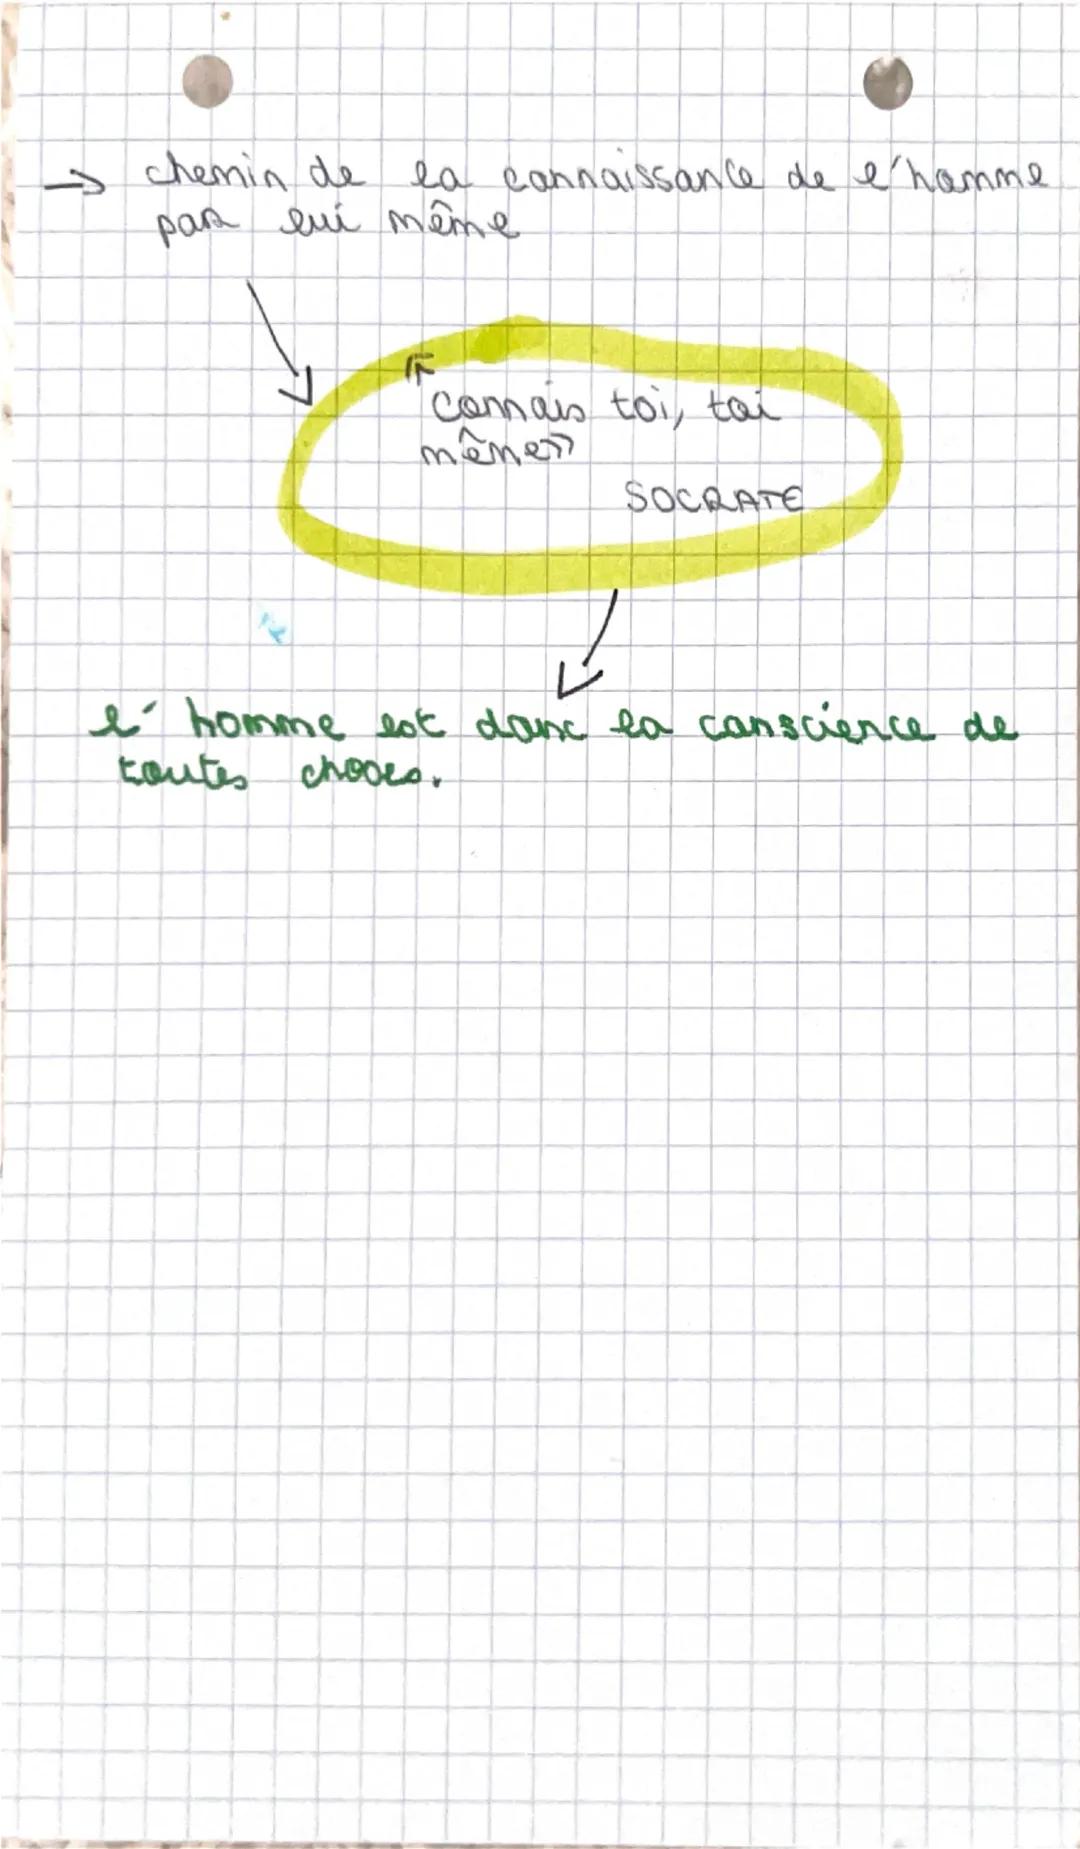 → chemin de la connaissance de l'homme
par lui même
"connais toi, toi
même"
SOCRATE
l'homme est donc la conscience de
toutes choses.